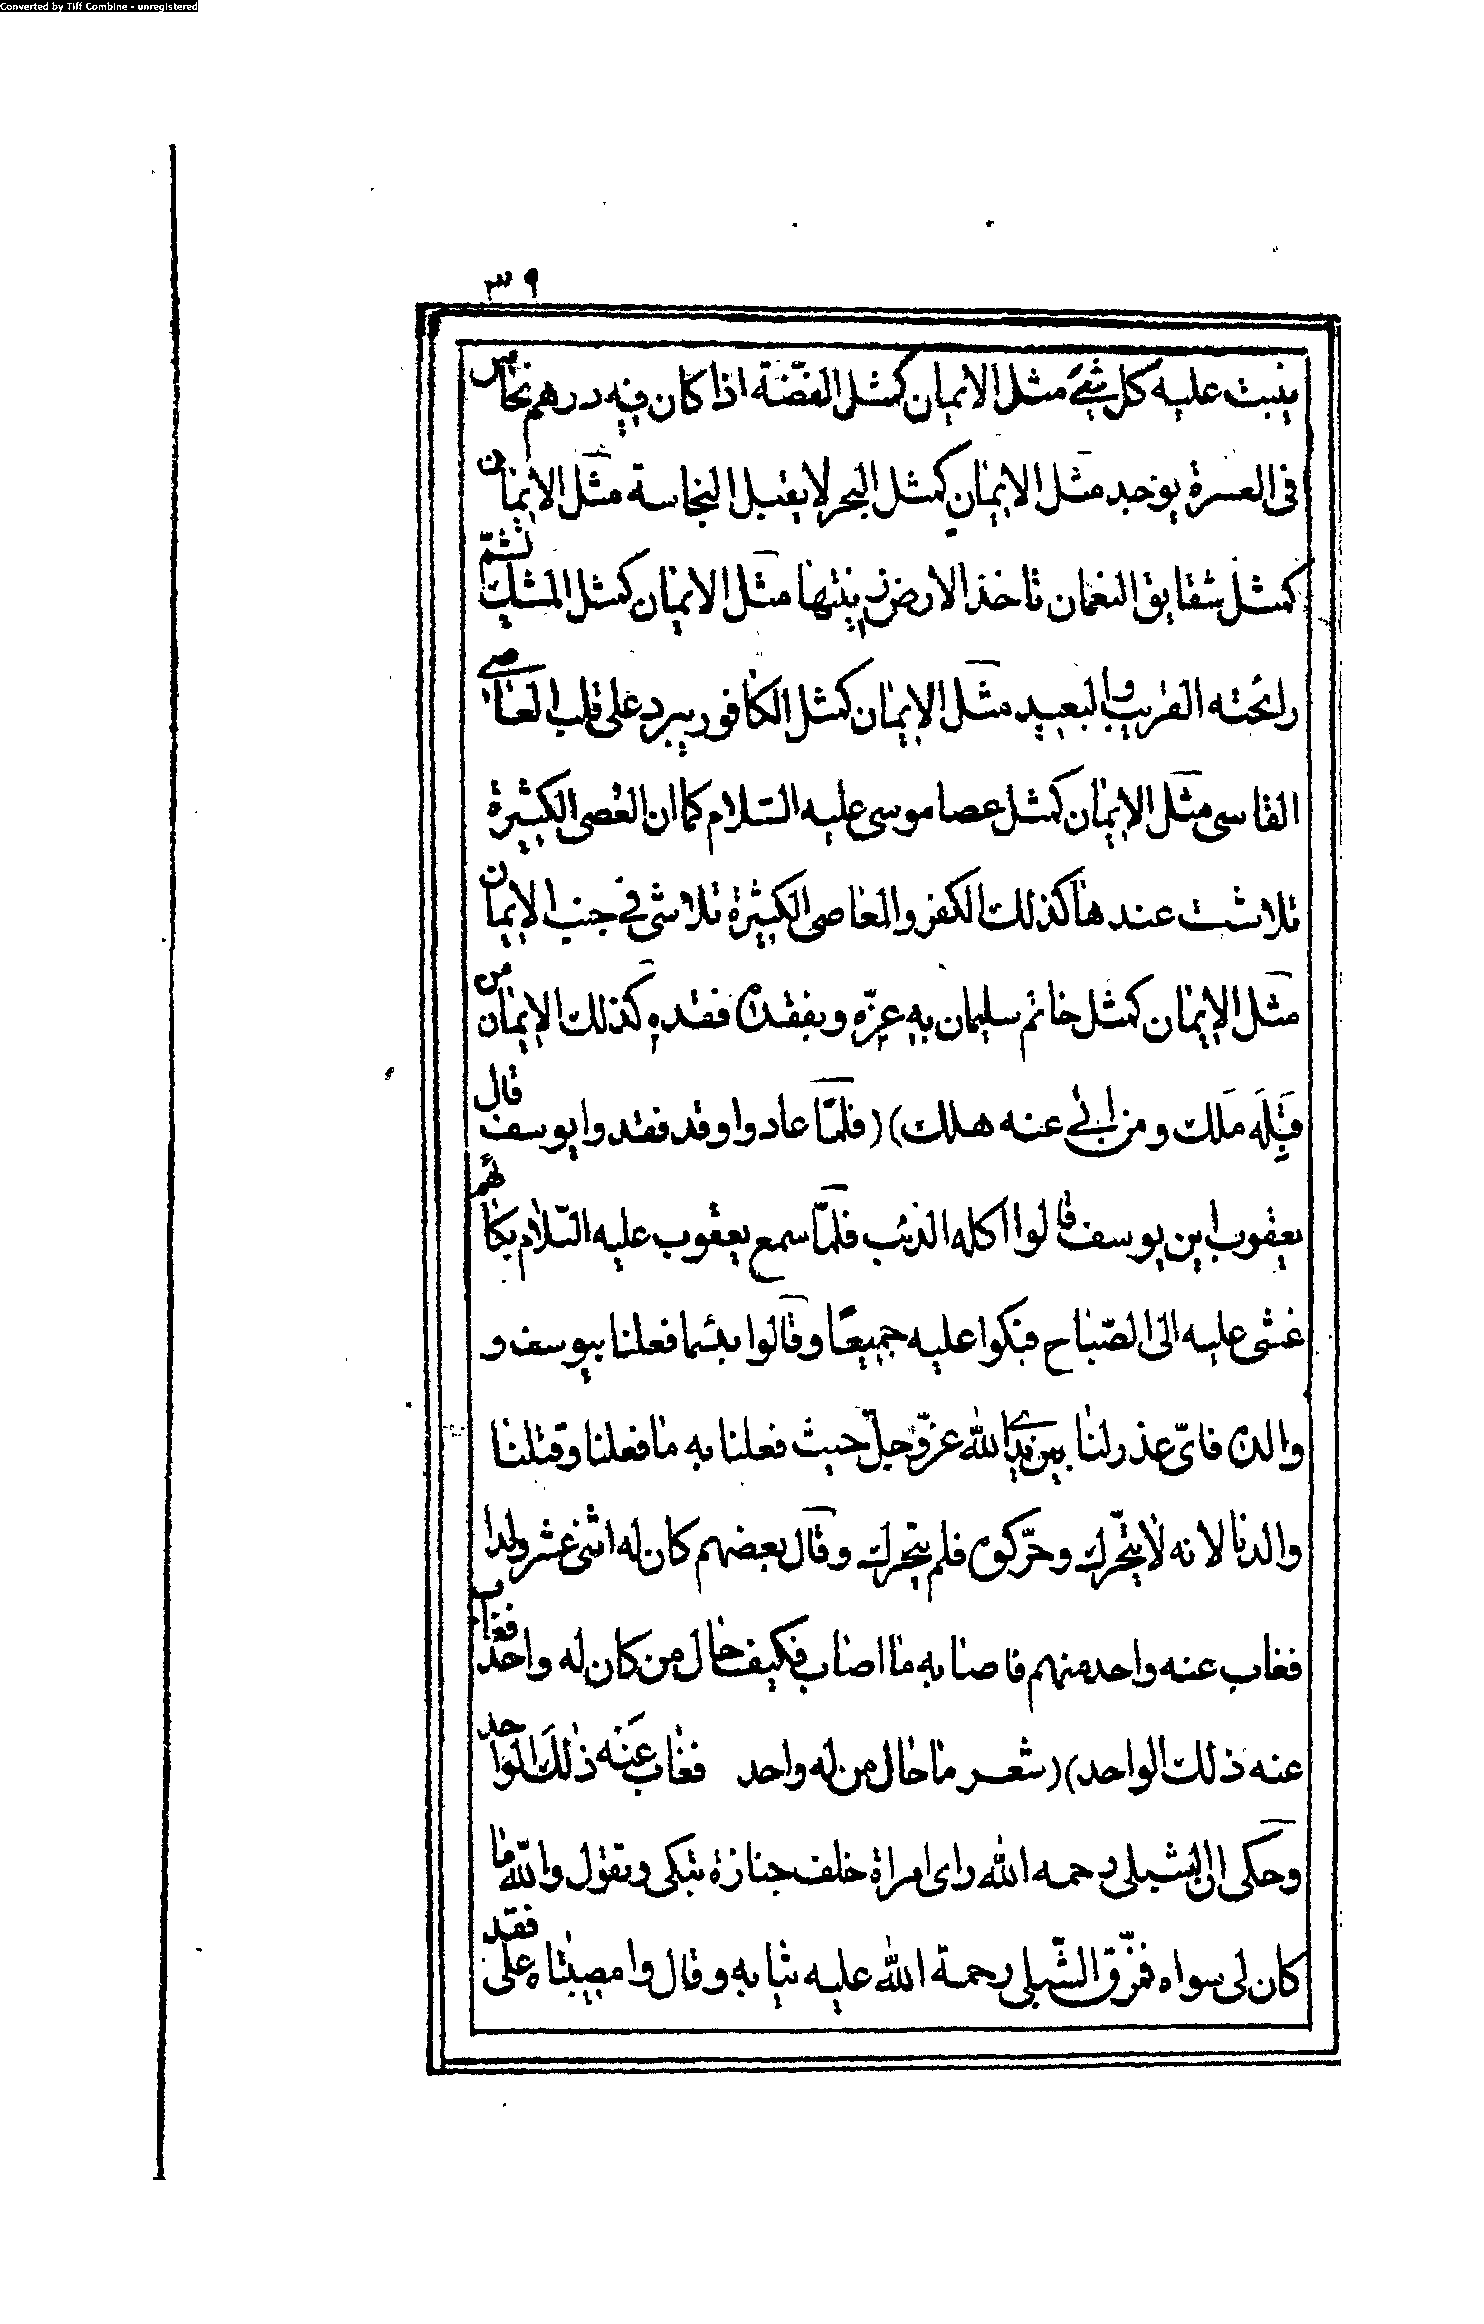 Converted by Tiff Combine - unregistered
٣٩
ينبت عليه كل شئ مثل الايمان كمثل الفضة اذا كان فيه درهم نحاس
فى العسرة يوخد مثل الايمان كمثل البحر لا يقبل النجاسة مثل الايمان
كمثل شقايق النعمان تاخذ الارض زينتها مثل الايمان كمثل المسك تشمّ
رائحته القريب والبعيد مثل الايمان كمثل الكافور يبرد على قلب العاصى
القاسى مثل الايمان كمثل عصا موسى عليه السّلام كما ان العُصى الكثيرة
تلاشت عندها كذلك الكفر والمعاصى الكثيرة تلاشى فى جنب الايمان
مثل الايمان كمثل خاتم سليمان به عزّه وبفقدان فقده كذلك الايمان من
قَبِلَه مَلك ومن ابى عنه هلك) (فلمّا عادوا وقد فقدوا يوسف قال
يعقوب اين يوسف قالوا اكله الذئب فلمّا سمع يعقوب عليه السّلام بكاهُم
غشى عليه الى الصّباح فبكوا عليه جميعًا وقالوا بئسما فعلنا بيوسف و
والدن فاىّ عذر لنا بين يدى الله عزّ وجلّ حيث فعلنا به ما فعلنا وقتلنا
والدنا لانه لا يتحّرك وحّركوه فلم يتحّرك وقال بعضهم كان له اثنى عشر ولدا
فغاب عنه واحد منهم فاصابه ما اصاب فكيف حال من كان له واحد فغاب
عنه ذلك الواحد) (شعر ما حال من له واحد فغاب عَنْه ذٰلك الواحد
وحكى ان الشبلى رحمه الله راى امراة خلف جنازة تبكى وتقول والله ما
كان لى سواه فمزّق الشّبلى رحمة الله عليه ثيابه وقال وا مصيبتاه على فقد